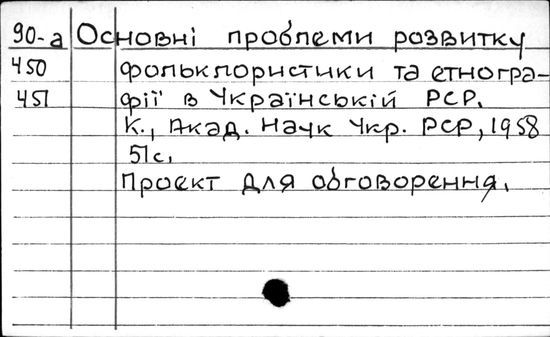 90-а Основні проблеми розвитку
450 фольклористики та етногра-
451 фії в Українській РСР.
К., Акад. Наук Укр. РСР, 1958
51с.
Проєкт для обговорення.